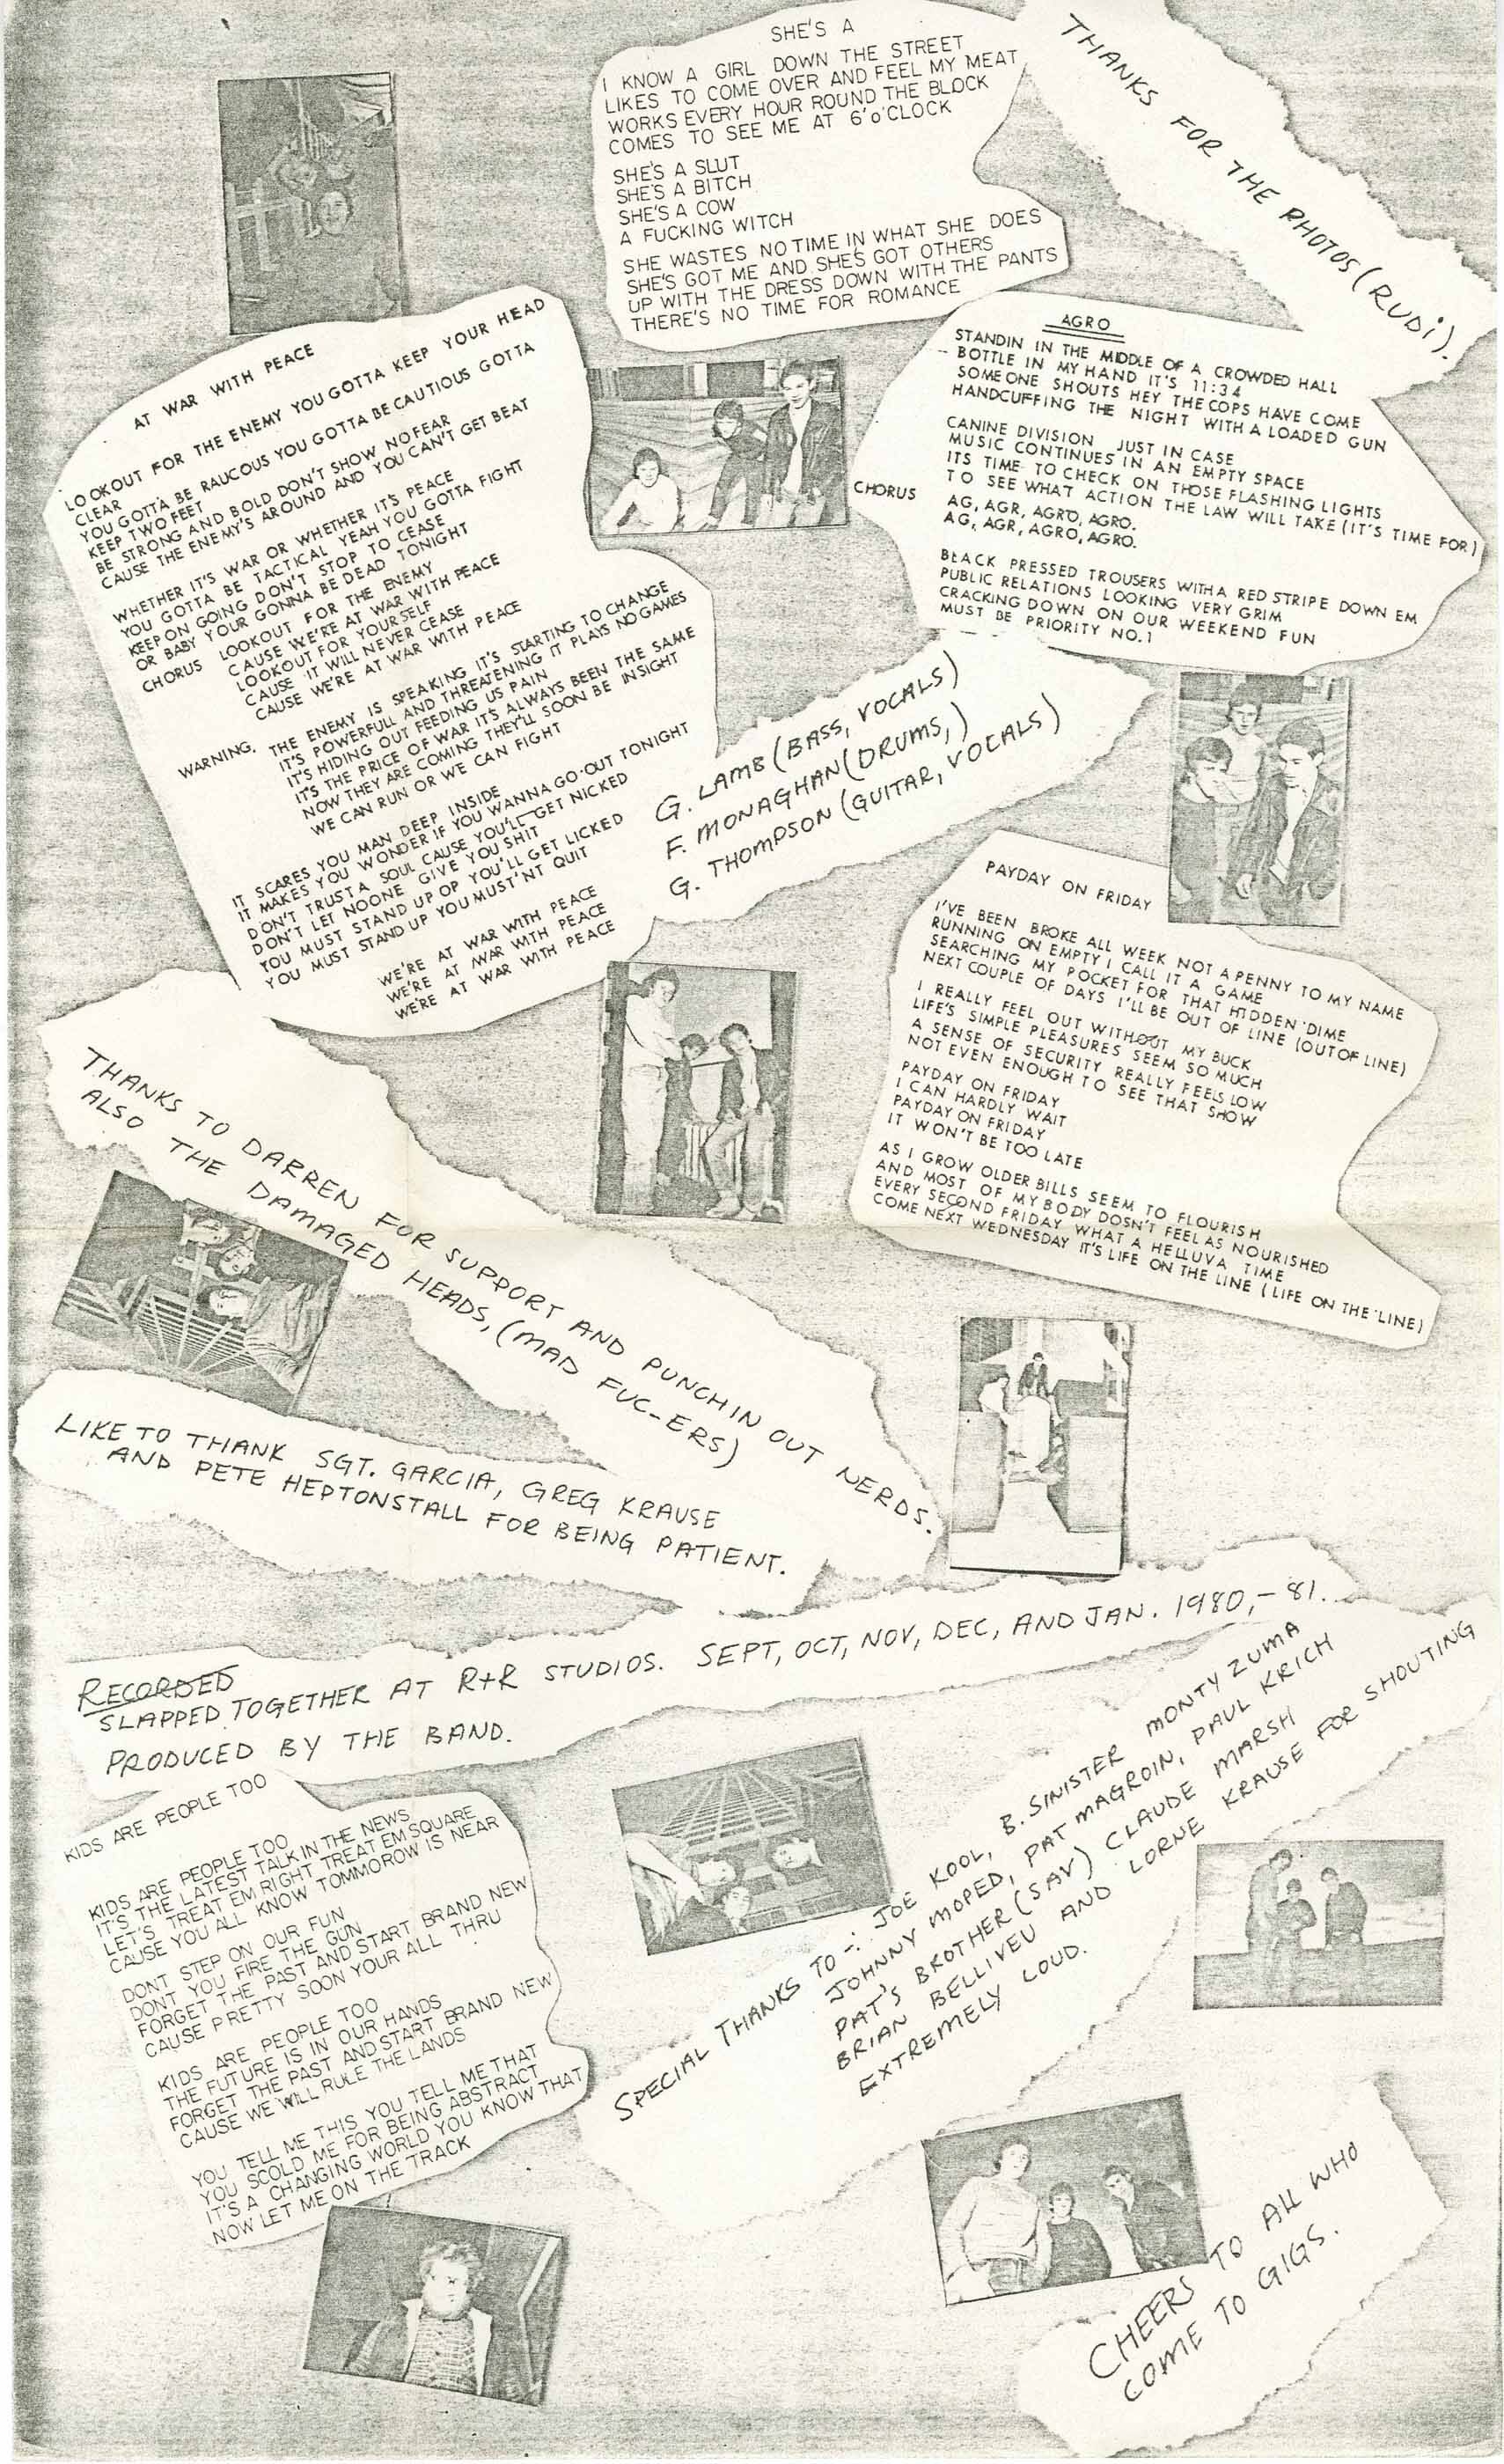 SHE'S A
I KNOW A GIRL DOWN THE STREET
LIKES TO COME OVER AND FEEL MY MEAT
WORKS EVERY HOUR ROUND THE BLOCK
COMES TO SEE ME AT 6'O'CLOCK
SHE'S A SLUT
SHE'S A BITCH
SHE'S A COW
A FUCKING WITCH
SHE WASTES NO TIME IN WHAT SHE DOES
SHE'S GOT ME AND SHE'S GOT OTHERS
UP WITH THE DRESS DOWN WITH THE PANTS
THERE'S NO TIME FOR ROMANCE
THANKS FOR THE PHOTOS (RUDI).
AT WAR WITH PEACE
LOOKOUT FOR THE ENEMY YOU GOTTA KEEP YOUR HEAD
CLEAR
YOU GOTTA BE RAUCOUS YOU GOTTA BE CAUTIOUS GOTTA
KEEP TWO FEET
BE STRONG AND BOLD DON'T SHOW NO FEAR
CAUSE THE ENEMY'S AROUND AND YOU CAN'T GET BEAT
WHETHER IT'S WAR OR WHETHER IT'S PEACE
YOU GOTTA BE TACTICAL YEAH YOU GOTTA FIGHT
KEEP ON GOING DON'T STOP TO CEASE
OR BABY YOUR GONNA BE DEAD TONIGHT
CHORUS LOOKOUT FOR THE ENEMY
CAUSE WE'RE AT WAR WITH PEACE
LOOKOUT FOR YOURSELF
CAUSE IT WILL NEVER CEASE
CAUSE WE'RE AT WAR WITH PEACE
WARNING. THE ENEMY IS SPEAKING IT'S STARTING TO CHANGE
IT'S POWERFULL AND THREATENING IT PLAYS NO GAMES
IT'S HIDING OUT FEEDING US PAIN
IT'S THE PRICE OF WAR IT'S ALWAYS BEEN THE SAME
NOW THEY ARE COMING THEY'LL SOON BE INSIGHT
WE CAN RUN OR WE CAN FIGHT
IT SCARES YOU MAN DEEP INSIDE
IT MAKES YOU WONDER IF YOU WANNA GO-OUT TONIGHT
DON'T TRUST A SOUL CAUSE YOU'LL GET NICKED
DON'T LET NOONE GIVE YOU SHIT
YOU MUST STAND UP OP YOU'LL GET LICKED
YOU MUST STAND UP YOU MUST'NT QUIT
WE'RE AT WAR WITH PEACE
WE'RE AT WAR WITH PEACE
WE'RE AT WAR WITH PEACE
AGRO
STANDIN IN THE MIDDLE OF A CROWDED HALL
- BOTTLE IN MY HAND IT'S 11:34
SOMEONE SHOUTS HEY THE COPS HAVE COME
HANDCUFFING THE NIGHT WITH A LOADED GUN
CANINE DIVISION JUST IN CASE
MUSIC CONTINUES IN AN EMPTY SPACE
ITS TIME TO CHECK ON THOSE FLASHING LIGHTS
TO SEE WHAT ACTION THE LAW WILL TAKE (IT'S TIME FOR)
CHORUS AG, AGR, AGRO, AGRO.
AG, AGR, AGRO, AGRO.
BLACK PRESSED TROUSERS WITH A RED STRIPE DOWN EM
PUBLIC RELATIONS LOOKING VERY GRIM
CRACKING DOWN ON OUR WEEKEND FUN
MUST BE PRIORITY NO.1
G. LAMB (BASS, VOCALS)
F. MONAGHAN (DRUMS,)
G. THOMPSON (GUITAR, VOCALS)
PAYDAY ON FRIDAY
I'VE BEEN BROKE ALL WEEK NOT A PENNY TO MY NAME
RUNNING ON EMPTY I CALL IT A GAME
SEARCHING MY POCKET FOR THAT HIDDEN DIME
NEXT COUPLE OF DAYS I'LL BE OUT OF LINE (OUT OF LINE)
I REALLY FEEL OUT WITHOUT MY BUCK
LIFE'S SIMPLE PLEASURES SEEM SO MUCH
A SENSE OF SECURITY REALLY FEELS LOW
NOT EVEN ENOUGH TO SEE THAT SHOW
PAYDAY ON FRIDAY
I CAN HARDLY WAIT
PAYDAY ON FRIDAY
IT WON'T BE TOO LATE
AS I GROW OLDER BILLS SEEM TO FLOURISH
AND MOST OF MY BODY DOSN'T FEEL AS NOURISHED
EVERY SECOND FRIDAY WHAT A HELLUVA TIME
COME NEXT WEDNESDAY IT'S LIFE ON THE LINE (LIFE ON THE LINE)
THANKS TO DARREN FOR SUPPORT AND PUNCHIN OUT NERDS.
ALSO THE DAMAGED HEADS, (MAD FUC-ERS)
LIKE TO THANK SGT. GARCIA, GREG KRAUSE
AND PETE HEPTONSTALL FOR BEING PATIENT.
RECORDED
SLAPPED TOGETHER AT R+R STUDIOS. SEPT, OCT, NOV, DEC, AND JAN. 1980,-81.
PRODUCED BY THE BAND.
KIDS ARE PEOPLE TOO
KIDS ARE PEOPLE TOO
IT'S THE LATEST TALK IN THE NEWS
LET'S TREAT EM RIGHT TREAT EM SQUARE
CAUSE YOU ALL KNOW TOMMOROW IS NEAR
DONT STEP ON OUR FUN
DONT YOU FIRE THE GUN
FORGET THE PAST AND START BRAND NEW
CAUSE PRETTY SOON YOUR ALL THRU
KIDS ARE PEOPLE TOO
THE FUTURE IS IN OUR HANDS
FORGET THE PAST AND START BRAND NEW
CAUSE WE WILL RULE THE LANDS
YOU TELL ME THIS YOU TELL ME THAT
YOU SCOLD ME FOR BEING ABSTRACT
IT'S A CHANGING WORLD YOU KNOW THAT
NOW LET ME ON THE TRACK
SPECIAL THANKS TO -: JOE KOOL, B. SINISTER MONTY ZUMA
JOHNNY MOPED, PAT MAGROIN, PAUL KRICH
PAT'S BROTHER (SAV) CLAUDE MARSH
BRIAN BELLIVEU AND LORNE KRAUSE FOR SHOUTING
EXTREMELY LOUD.
CHEERS TO ALL WHO
COME TO GIGS.